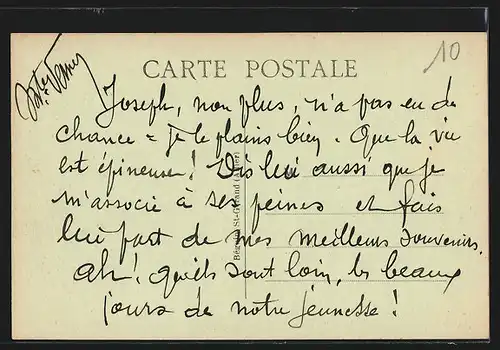 10
CARTE POSTALE
Joseph, non plus, n'a pas eu de
chance = je le plains bien. Que la vie
est épineuse ! Dis lui aussi que je
m'associe à ses peines et fais
lui part de mes meilleurs souvenirs.
Ah ! qu'ils sont loin, les beaux
jours de notre jeunesse !